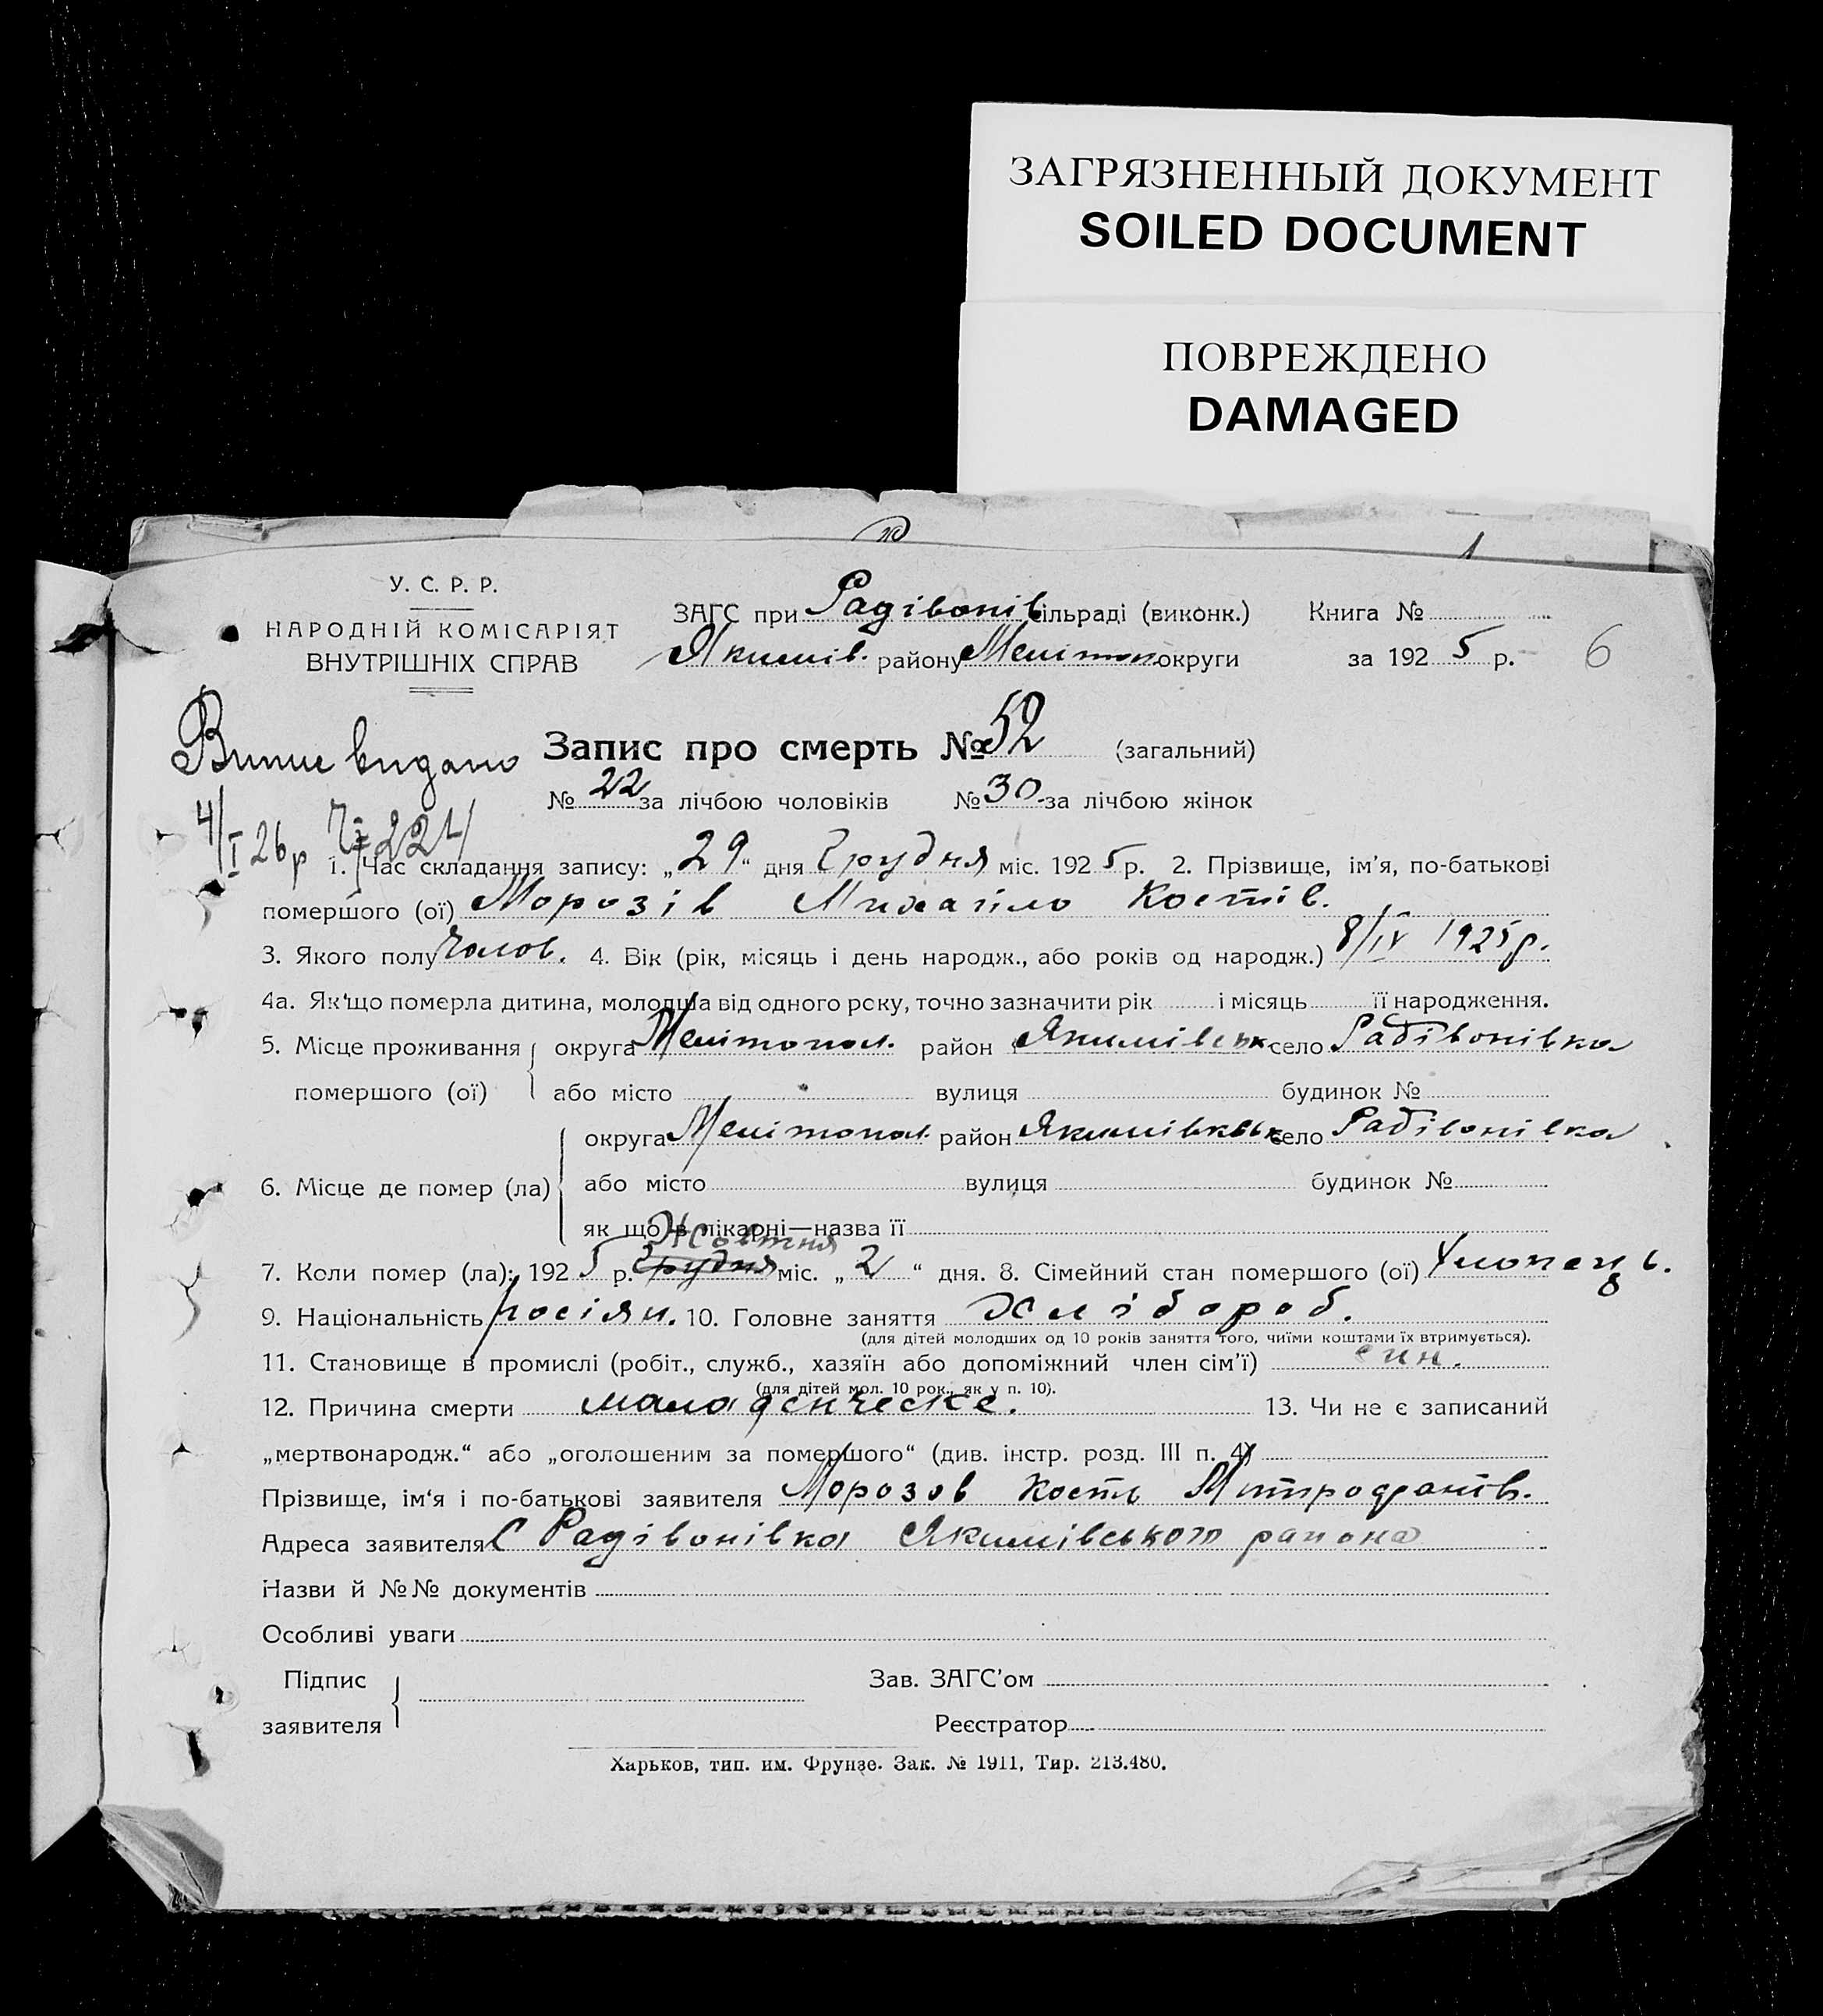 ЗАГРЯЗНЕННЫЙ ДОКУМЕНТ
SOILED DOCUMENT
ПОВРЕЖДЕНО
DAMAGED
У. С. Р. Р.
НАРОДНІЙ КОМІСАРІЯТ
ВНУТРІШНІХ СПРАВ
ЗАГС при Радівонів сільраді (виконк.) Книга №
Якимів. району Мелітоп. округи за 1925 р. 6
Випис видано
Запис про смерть № 52 (загальний)
№ 22 за лічбою чоловіків № 30 за лічбою жінок
4/I 26 р
1. Час складання запису: „29“ дня Грудня міс. 1925 р. 2. Прізвище, ім'я, по-батькові
помершого (ої) Морозів Михаіло Костів.
3. Якого полу Чолов. 4. Вік (рік, місяць і день народж., або років од народж.) 8/IV 1925 р.
4а. Як'що померла дитина, молодша від одного року, точно зазначити рік і місяць її народження.
5. Місце проживання округа Мелітопол. район Якимівськ село Радівонівка
помершого (ої) або місто вулиця будинок №
округа Мелітопол. район Якимівськ село Радівонівка
6. Місце де помер (ла) або місто вулиця будинок №
як що в лікарні—назва її
Жовтня
7. Коли помер (ла): 1925 р. Грудня міс. „2“ дня. 8. Сімейний стан помершого (ої) Хлопець.
9. Національність росіян. 10. Головне заняття Хлібороб.
(для дітей молодших од 10 років заняття того, чиїми коштами їх втримується).
11. Становище в промислі (робіт., служб., хазяїн або допоміжний член сім'ї) син.
(для дітей мол. 10 рок., як у п. 10).
12. Причина смерти маладенческе. 13. Чи не є записаний
„мертвонародж.“ або „оголошеним за помершого“ (див. інстр. розд. III п. 4)
Прізвище, ім'я і по-батькові заявителя Морозов Кость Митрофанів.
Адреса заявителя С Радівонівка Якимівського района
Назви й №№ документів
Особливі уваги
Підпис Зав. ЗАГС'ом
заявителя Реєстратор
Харьков, тип. им. Фрунзе. Зак. № 1911, Тир. 213.480.